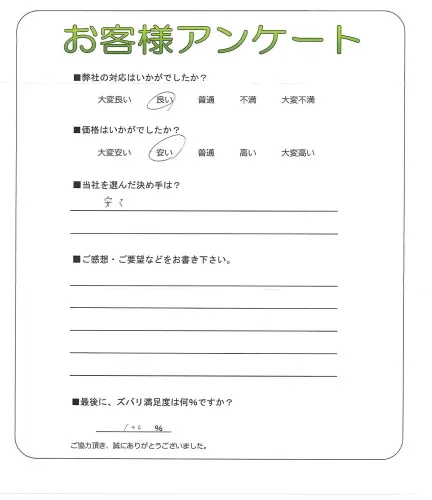 お客様アンケート
■弊社の対応はいかがでしたか？
大変良い 良い 普通 不満 大変不満
■価格はいかがでしたか？
大変安い 安い 普通 高い 大変高い
■当社を選んだ決め手は？
安さ
■ご感想・ご要望などをお書き下さい。
■最後に、ズバリ満足度は何％ですか？
100 ％
ご協力頂き、誠にありがとうございました。